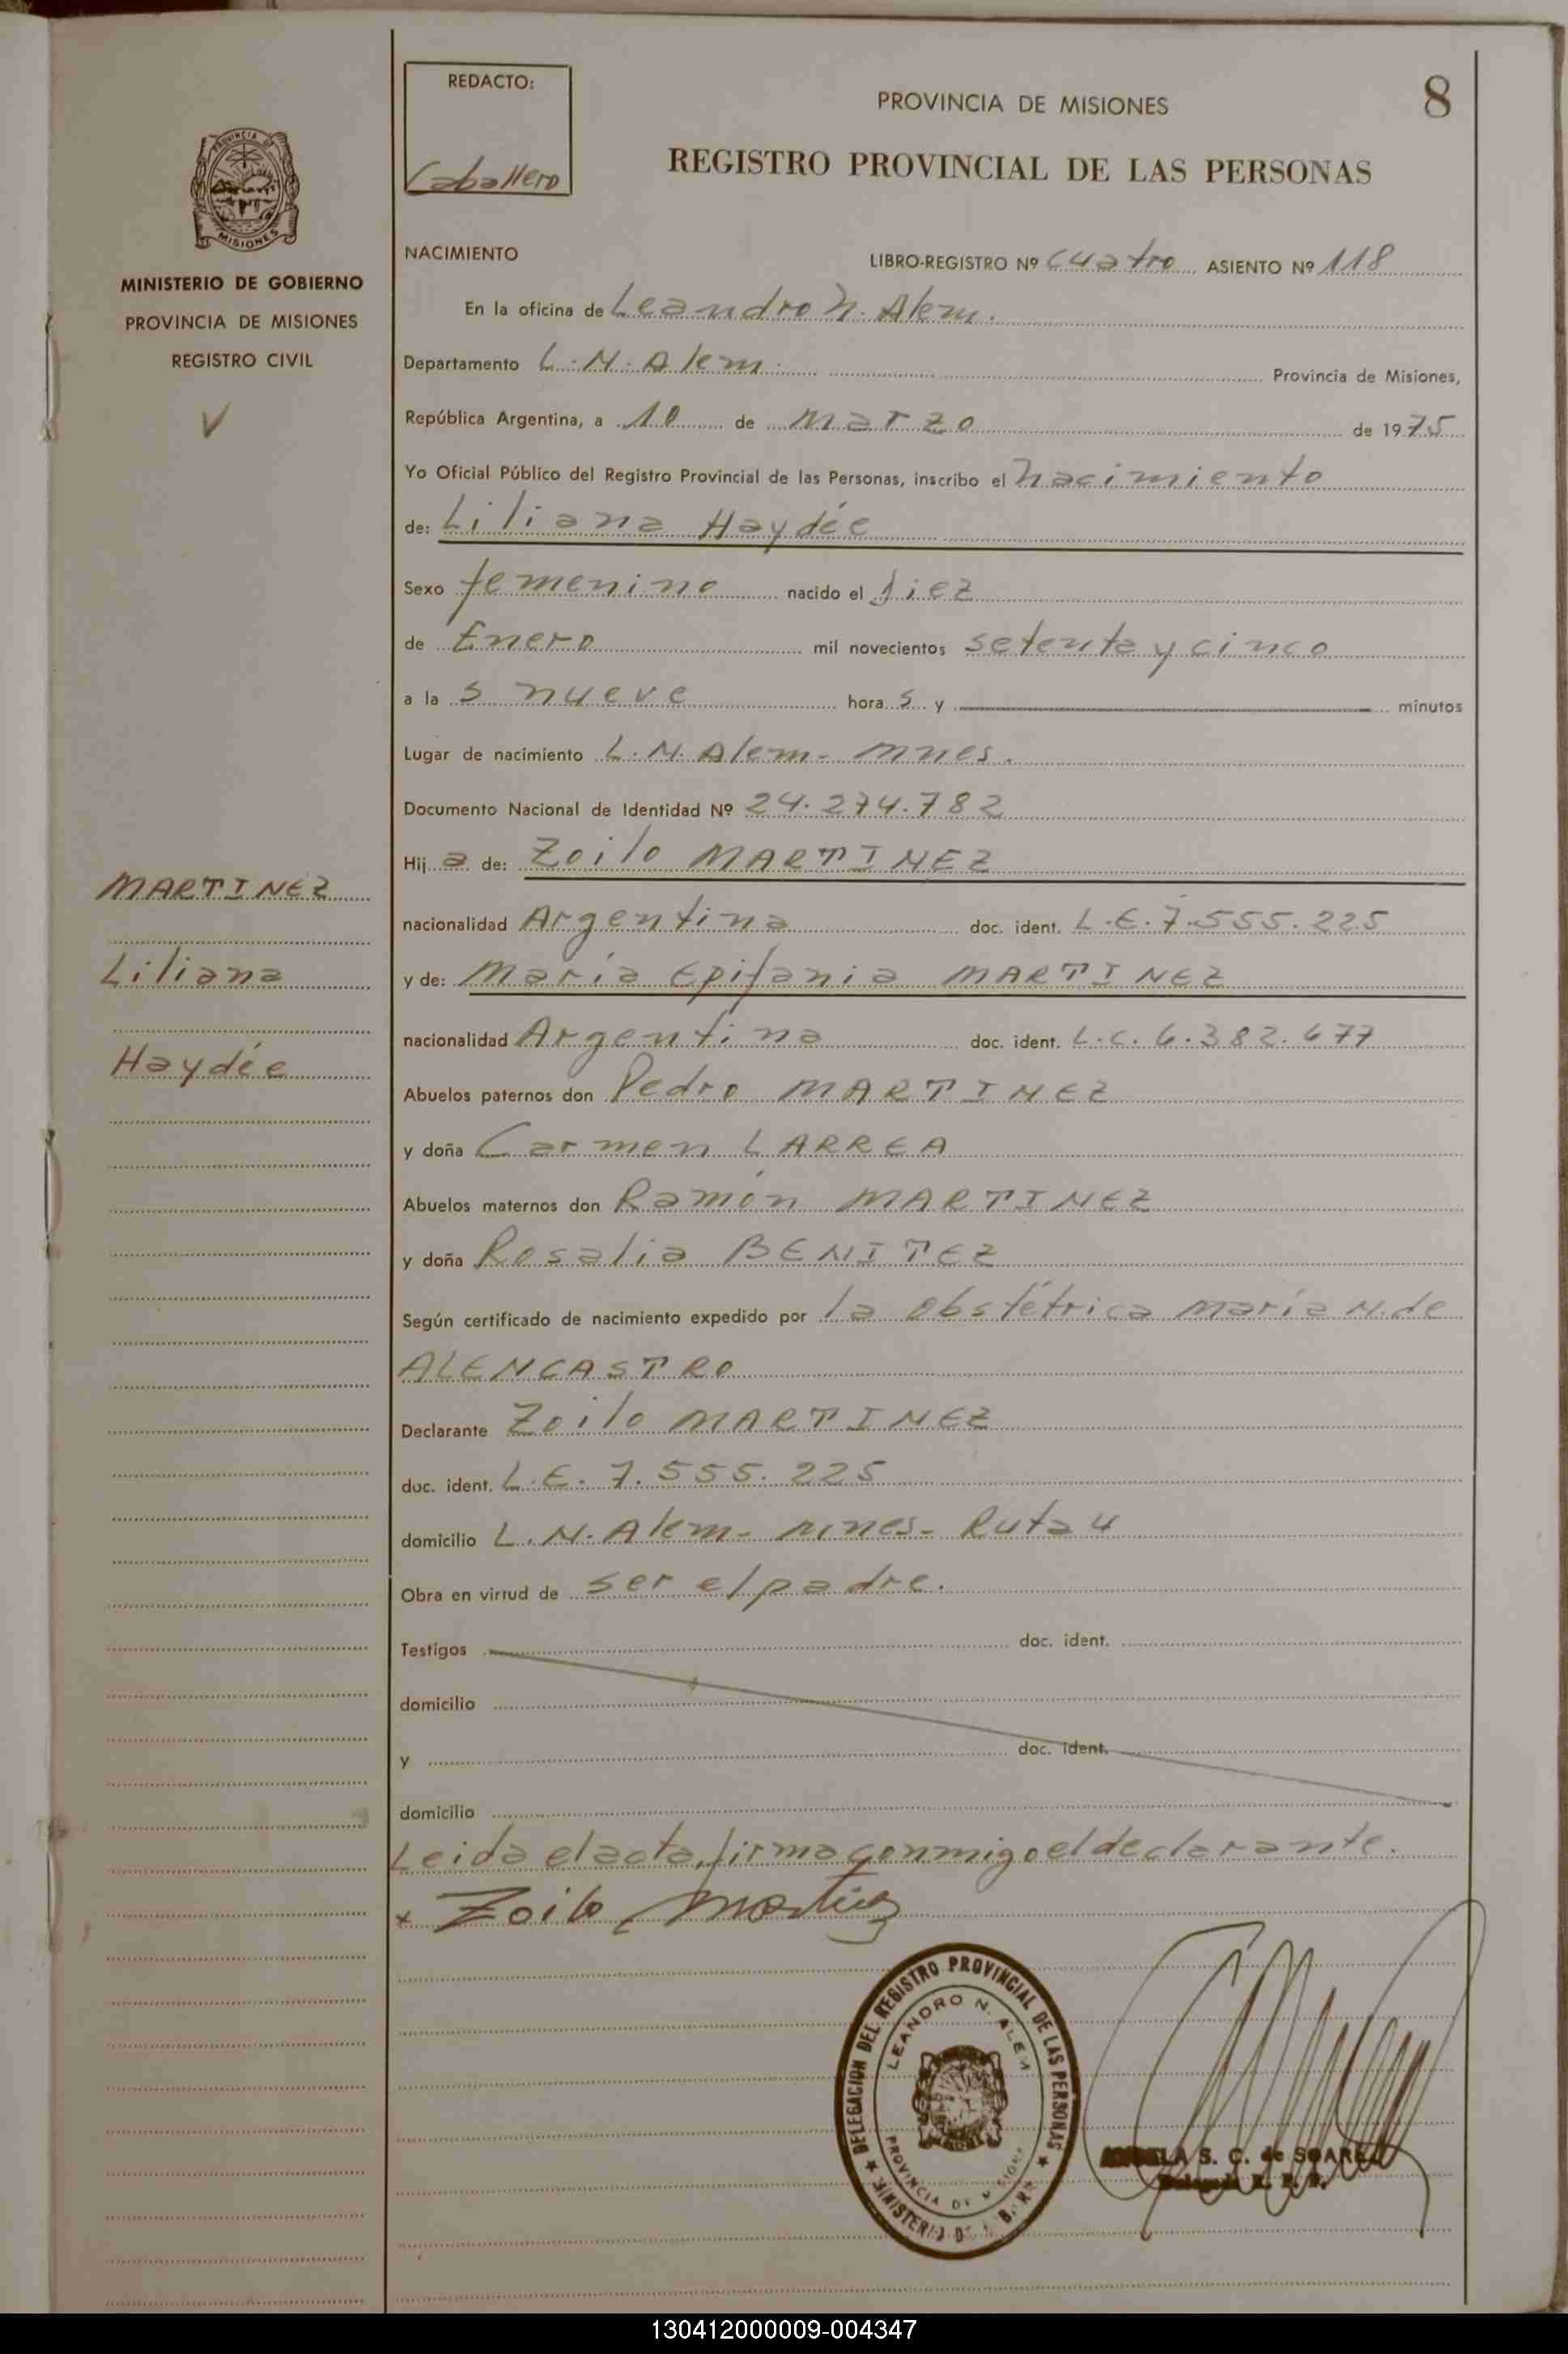 8
REDACTO:
Caballero
PROVINCIA DE MISIONES
REGISTRO PROVINCIAL DE LAS PERSONAS
PROVINCIA DE
MISIONES
MINISTERIO DE GOBIERNO
PROVINCIA DE MISIONES
REGISTRO CIVIL
NACIMIENTO
LIBRO-REGISTRO Nº cuatro ASIENTO Nº 118
En la oficina de Leandro N. Alem.
Departamento L.N. Alem. Provincia de Misiones,
República Argentina, a 10 de marzo de 1975
Yo Oficial Público del Registro Provincial de las Personas, inscribo el nacimiento
de: Liliana Haydée
Sexo femenino nacido el diez
de Enero mil novecientos setenta y cinco
a las nueve horas y minutos
Lugar de nacimiento L.N. Alem- Mnes.
Documento Nacional de Identidad Nº 24.274.782
Hija de: Zoilo MARTINEZ
nacionalidad Argentina doc. ident. L.E. 7.555.225
y de: María Epifania MARTINEZ
nacionalidad Argentina doc. ident. L.C. 6.382.677
Abuelos paternos don Pedro MARTINEZ
y doña Carmen LARREA
Abuelos maternos don Ramón MARTINEZ
y doña Rosalia BENITEZ
Según certificado de nacimiento expedido por la obstétrica María N. de
ALENCASTRO
Declarante Zoilo MARTINEZ
doc. ident. L.E. 7.555.225
domicilio L.N. Alem- Mnes- Ruta 4
Obra en virtud de ser el padre.
Testigos doc. ident.
domicilio
y doc. ident.
domicilio
Leida el acta, firma conmigo el declarante.
x Zoilo Martinez
MARTINEZ
Liliana
Haydée
DELEGACION DEL REGISTRO PROVINCIAL DE LAS PERSONAS
LEANDRO N. ALEM
PROVINCIA DE MISIONES
MINISTERIO DE
S. C. de SOAREZ
130412000009-004347